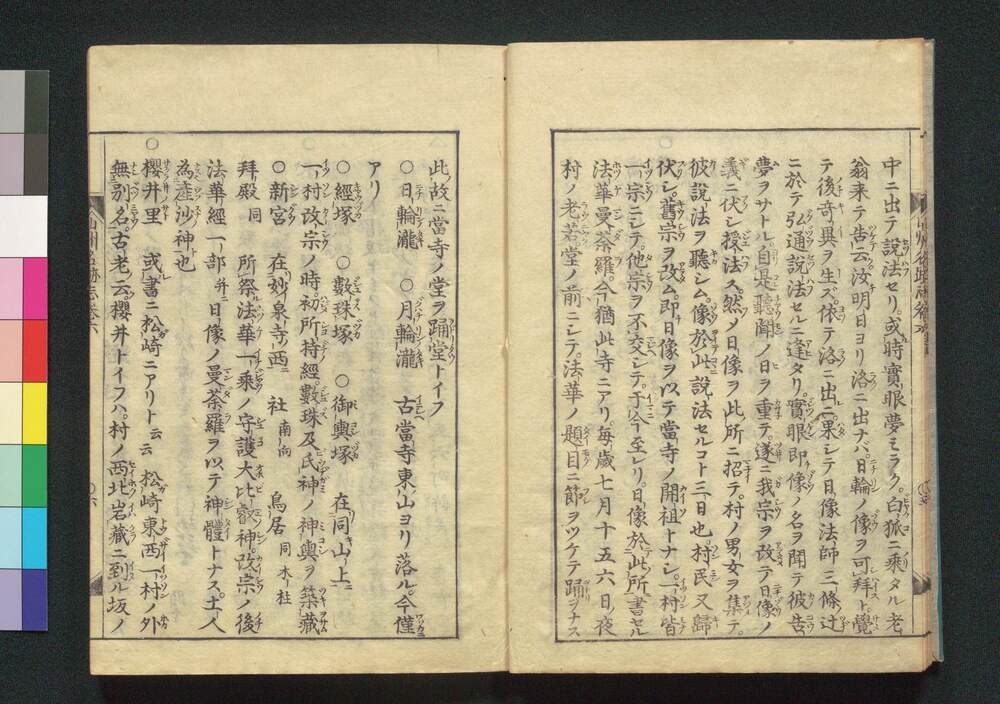 中ニ出テ説法セリ。或時實眼夢ミラク。白狐ニ乗タル老
翁来テ告云汝明日ヨリ洛ニ出ナバ。日輪ノ像ヲ可拜ト。覺
テ後奇異ヲ生ズ。依テ洛ニ出ニ果シテ日像法師三條辻
ニ於テ弘通説法セルニ逢タリ。實眼即像ノ名ヲ聞テ彼告
夢ヲサトル。自是聽聞ノ日ヲ重テ。遂ニ我宗ヲ改テ日像ノ
義ニ伏シ授法ス。然ノ日像ヲ此所ニ招テ。村ノ男女ヲ集テ。
彼説法ヲ聽シム。像於此説法セルコト三日也。村民又歸
伏シ。舊宗ヲ改ム。即日像ヲ以テ當寺ノ開祖トナシ。一村皆
一宗ニシテ。他宗ヲ不交シテ。于今至レリ。日像於此所書セル
法華曼荼羅。今猶此寺ニアリ。每歳七月十五六日ノ夜
村ノ老若堂ノ前ニシテ。法華ノ題目ニ節ヲツケテ踊ヲナス
此故ニ當寺ノ堂ヲ踊堂トイフ
○日輪瀧 ○月輪瀧 古當寺東山ヨリ落ル。今僅
アリ
○經塚 ○數珠塚 ○御輿塚 在同山上ニ
一村改宗ノ時初所持經。數珠及氏神ノ神輿ヲ築藏
○新宮 在妙泉寺ノ西ニ 社 南向 鳥居 同 木ノ柱
拜殿 同 所祭法華一乘ノ守護大比叡神。改宗ノ後
法華經一部幷ニ日像ノ曼荼羅ヲ以テ神體トナス。土人
為產沙神也
○櫻井里 或書ニ松崎ニアリト云云 松崎東西一村ノ外
無別名。古老ノ云。櫻井トイフハ。村ノ西北岩藏ニ到ル坂ノ
山州名跡志巻六
○六